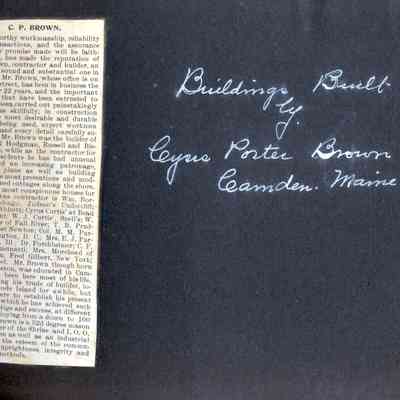 C. P. BROWN.
orthy workmanship, reliability
nsactions, and the assurance
promise made will be faith-
, has made the reputation of
wn, contractor and builder, an
sound and substantial one in
Mr. Brown, whose office is on
treet, has been in business the
22 years, and the important
that have been entrusted to
been carried out painstakingly
skilfully; in construction
most desirable and durable
being used, expert workmen
and every detail carefully
Mr. Brown was the builder of
Hodgman, Russell and
while as the contractor on
he has had unusual
an increasing patronage,
plans as well as building
most pretentious and mod-
cottages along the shore.
most conspicuous houses for
contractor is Wm.
Cyrus Curtis' at
W. J. Curtis',
of Fall River; T. B.
Newton; Col. M. M.
D. C., Mrs. E. J.
Ill; Dr. C. F.
Mrs. Morehead of
Fred Gilbert, New York;
Mr. Brown though born
ston, was educated in Cam-
been here most of his life,
ing his trade of builder,
ode Island for awhile, but
to establish his present
which he has achieved such
tige and success, at different
loying from a dozen to 100
rown is a 32d degree mason
er of the Shrine and I. O. O.
as well as an industrial
the esteem of the commun-
uprightness, integrity and
methods.
Buildings Built
by
Cyrus Porter Brown
Camden. Maine